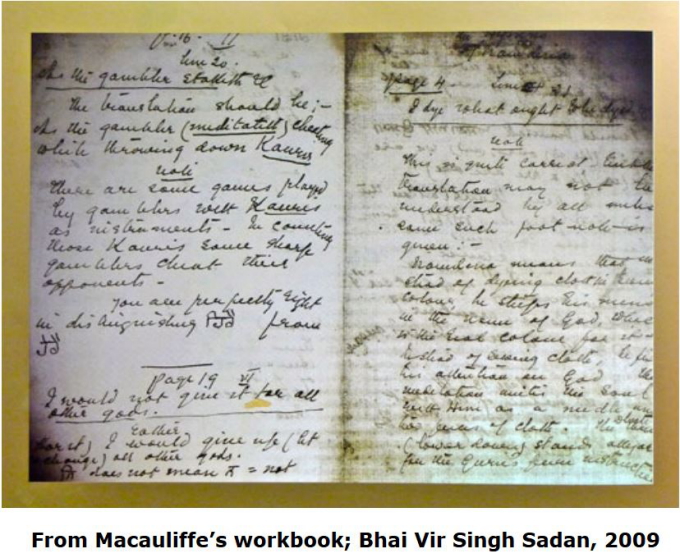 line 20.
As the gambler
The translation should be;-
As the gambler (meditateth) cheating
while throwing down Kauris
note
There are some games played
by gamblers with Kauris
as instruments - In counting
those Kauris some sharp
gamblers cheat their
opponents -
You are perfectly right
in distinguishing from
page 19 VI
I would not give it for all
other gods.
rather
for it) I would give up (let
change) all other gods.
does not mean = not
page 4 line
I dye what ought to be dyed
note
This is quite correct.
translation may not be
understood by all unless
some such foot-note is
given :-
means that in
stead of dying cloth
colour, he steeps his mind
in the name of God, which
is the real colour for it -
Instead of sewing cloth he
his attention on God
meditation unites the soul
with Him as a needle
two pieces of cloth. The
(lower down) stands
for the Guru's given
From Macauliffe's workbook; Bhai Vir Singh Sadan, 2009